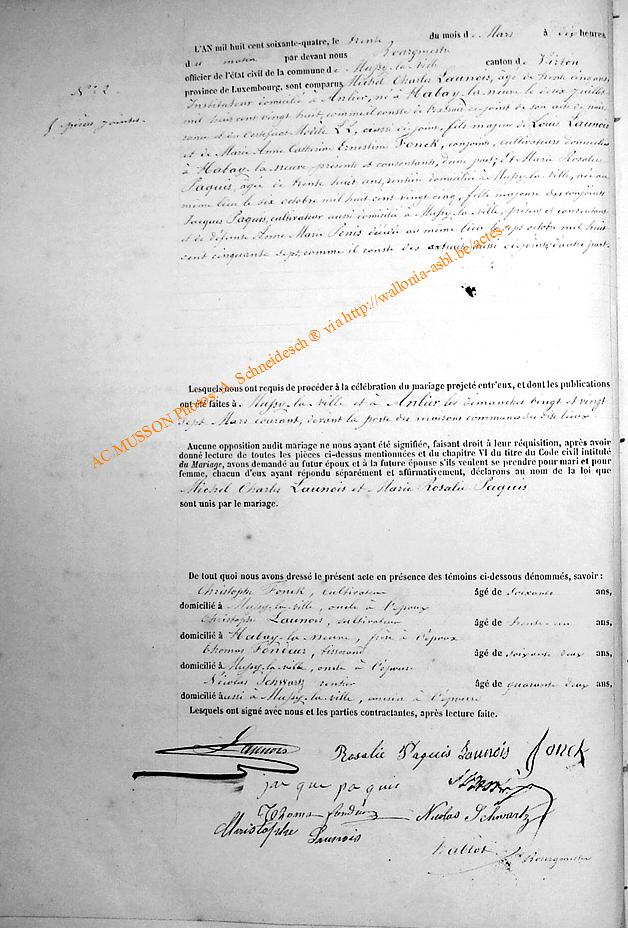 N° 2
5 pièces jointes.
L'AN mil huit cent soixante-quatre, le trente du mois de Mars à dix heures
du matin par devant nous Bourgmestre
officier de l'état civil de la commune de Mussy-la-ville canton de Virton
province de Luxembourg, sont comparus Michel Charles Launois, âgé de trente cinq ans,
Instituteur domicilié à Anlier, né à Habay-la-neuve le deux juillet
mil huit cent vingt huit, comme il conste de l'extrait ci-joint de son acte de nais
sance et du Certificat Modèle LL, aussi ci-joint, fils majeur de Louis Launois
et de Marie Anne Catherine Ernestine Fonck, conjoints, cultivateurs domiciliés
à Habay-la-neuve présents et consentants, d'une part; Et Marie Rosalie
Paquis, âgée de trente huit ans, rentière domiciliée à Mussy-la-ville, née au
même lieu le six octobre mil huit cent vingt cinq, fille majeure des conjoints
Jacques Paquis, cultivateur aussi domicilié à Mussy-la-ville, présent et consentant
et de défunte Anne Marie Penis décédée au même lieu le sept octobre mil huit
cent cinquante sept, comme il conste des extraits aussi ci-joints, d'autre part.
Lesquels nous ont requis de procéder à la célébration du mariage projeté entr'eux, et dont les publications
ont été faites à Mussy-la-ville et à Anlier les dimanches vingt et vingt
sept Mars courant, devant la porte des maisons communes des dits lieux
Aucune opposition audit mariage ne nous ayant été signifiée, faisant droit à leur réquisition, après avoir
donné lecture de toutes les pièces ci-dessus mentionnées et du chapitre VI du titre du Code civil intitulé
du Mariage, avons demandé au futur époux et à la future épouse s'ils veulent se prendre pour mari et pour
femme, chacun d'eux ayant répondu séparément et affirmativement, déclarons au nom de la loi que
Michel Charles Launois et Marie Rosalie Paquis
sont unis par le mariage.
De tout quoi nous avons dressé le présent acte en présence des témoins ci-dessous dénommés, savoir :
Christophe Fonck, cultivateur âgé de soixante ans,
domicilié à Mussy-la-ville, oncle à l'époux
Christophe Launois, cultivateur âgé de trente un ans,
domicilié à Habay-la-neuve, frère à l'époux
Thomas Fondeur, tisserand âgé de soixante deux ans,
domicilié à Mussy-la-ville, oncle à l'épouse
Nicolas Schwartz rentier âgé de quarante deux ans,
domicilié aussi à Mussy-la-ville, cousin à l'épouse
Lesquels ont signé avec nous et les parties contractantes, après lecture faite.
Launois Rosalie Paquis Launois Fonck
jacque paquis
Thomas fondeur Nicolas Schwartz
Christophe Launois
Bourgmestre
AC MUSSON Photos A. Schneidesch ® via http://wallonia-asbl.be/actes-